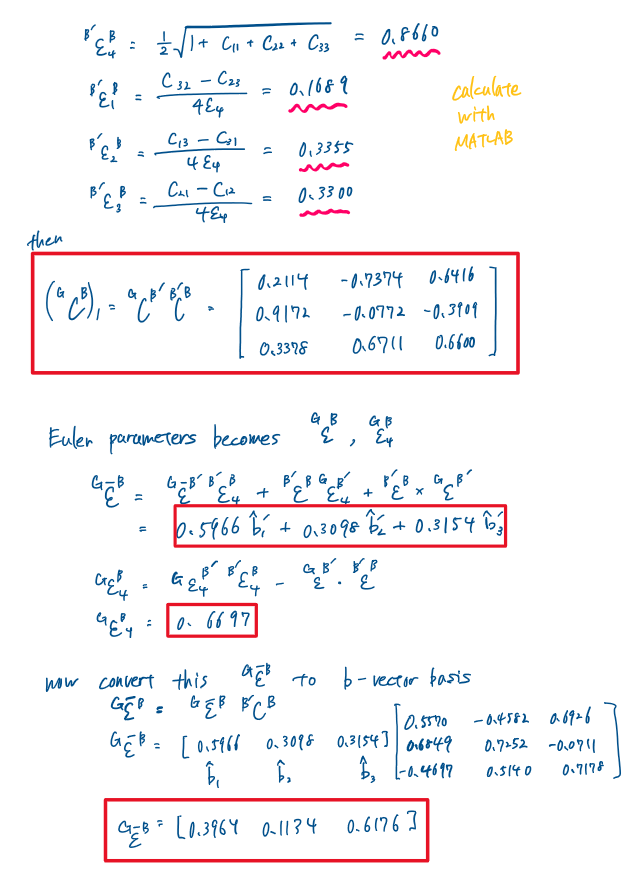 B' ε₄ B = 1/2 √(1 + C₁₁ + C₂₂ + C₃₃) = 0.8660
B' ε₁ B = (C₃₂ − C₂₃) / 4ε₄ = 0.1689
B' ε₂ B = (C₁₃ − C₃₁) / 4ε₄ = 0.3355
B' ε₃ B = (C₂₁ − C₁₂) / 4ε₄ = 0.3300
calculate
with
MATLAB
then
(ᴳCᴮ)₁ = ᴳCᴮ' ᴮ'Cᴮ =
[ 0.2114 -0.7374 0.6416
0.9172 -0.0772 -0.3909
0.3378 0.6711 0.6600 ]
Euler parameters becomes ᴳεᴮ, ᴳε₄ᴮ
ᴳε̄ᴮ = ᴳε̄ᴮ' ᴮ'ε₄ᴮ + ᴮ'εᴮ ᴳε₄ᴮ' + ᴮ'ε̄ᴮ × ᴳεᴮ'
= 0.5966 b̂₁' + 0.3098 b̂₂' + 0.3154 b̂₃'
ᴳε₄ᴮ = ᴳε₄ᴮ' ᴮ'ε₄ᴮ − ᴳε̄ᴮ' · ᴮ'ε̄ᴮ
ᴳε₄ᴮ = 0.6697
now convert this ᴳε̄ᴮ to b-vector basis
ᴳε̄ᴮ = ᴳε̄ᴮ ᴮ'Cᴮ
ᴳε̄ᴮ = [0.5966 0.3098 0.3154]
b̂₁ b̂₂ b̂₃
[ 0.5570 -0.4582 0.6926
0.6849 0.7252 -0.0711
-0.4697 0.5140 0.7178 ]
ᴳε̄ᴮ = [0.3964 0.1134 0.6176]